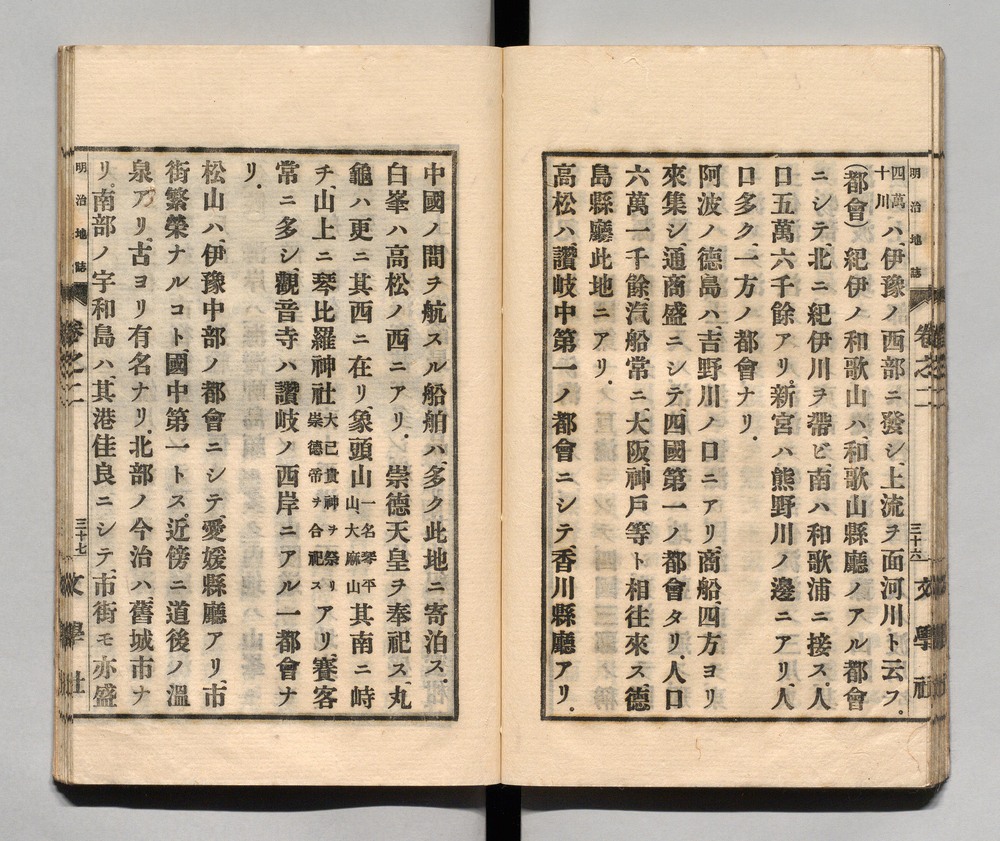 明治地誌 卷之二 三十六 文學社
四萬十川ハ、伊豫ノ西部ニ發シ、上流ヲ面河川ト云フ。
(都會) 紀伊ノ和歌山ハ、和歌山縣廳ノアル都會
ニシテ、北ニ紀伊川ヲ帶ビ南ハ和歌浦ニ接ス、人
口五萬六千餘アリ。新宮ハ熊野川ノ邊ニアリ、人
口多ク、一方ノ都會ナリ。
阿波ノ德島ハ、吉野川ノ口ニアリ、商船、四方ヨリ
來集シ、通商盛ニシテ、四國第一ノ都會タリ、人口
六萬一千餘、汽船常ニ、大阪、神戸等ト相往來ス、德
島縣廳此地ニアリ。
高松ハ、讚岐中第一ノ都會ニシテ、香川縣廳アリ。
中國ノ間ヲ航スル船舶ハ、多ク此地ニ寄泊ス。
白峯ハ高松ノ西ニアリ。崇德天皇ヲ奉祀ス。丸
龜ハ更ニ其西ニ在リ、象頭山一名琴平山、大麻山其南ニ峙
チ、山上ニ琴比羅神社大己貴神ヲ祭リ崇德帝ヲ合祀スアリ、賽客
常ニ多シ、觀音寺ハ讚岐ノ西岸ニアル一都會ナ
リ。
松山ハ、伊豫中部ノ都會ニシテ、愛媛縣廳アリ、市
街繁榮ナルコト國中第一トス。近傍ニ道後ノ溫
泉アリ、古ヨリ有名ナリ。北部ノ今治ハ、舊城市ナ
リ、南部ノ宇和島ハ、其港佳良ニシテ、市街モ亦盛
明治地誌 卷之二 三十七 文學社